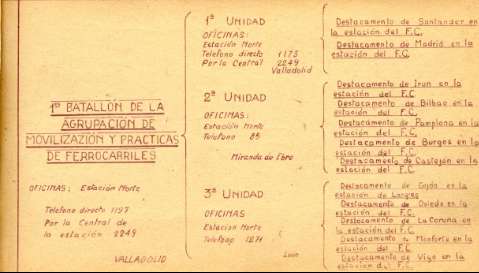 1º BATALLÓN DE LA
AGRUPACIÓN DE
MOVILIZACIÓN Y PRACTICAS
DE FERROCARRILES
OFICINAS: Estación Norte
Telefono directo 1197
Por la Central de
la estación 2249
VALLADOLID
1ª UNIDAD
OFICINAS:
Estación Norte
Telefono directo 1173
Por la Central 2249
Valladolid
Destacamento de Santander en
la estación del F.C.
Destacamento de Madrid en la
estación del F.C.
2ª UNIDAD
OFICINAS:
Estación Norte
Telefono 85
Miranda de Ebro
Destacamento de Irun en la
estación del F.C.
Destacamento de Bilbao en la
estación del F.C.
Destacamento de Pamplona en la
estación del F.C.
Destacamento de Burgos en la
estación del F.C.
Destacamento de Castejón en la
estación del F.C.
3ª UNIDAD
OFICINAS
Estacion Norte
Telefono 1271
Destacamento de Gijón en la
estación de
Destacamento de Oviedo en la
estación del F.C.
Destacamento de La Coruña en
la estación del F.C.
Destacamento de Monforte en la
estación del F.C.
Destacamento de Vigo en la
estacion del F.C.